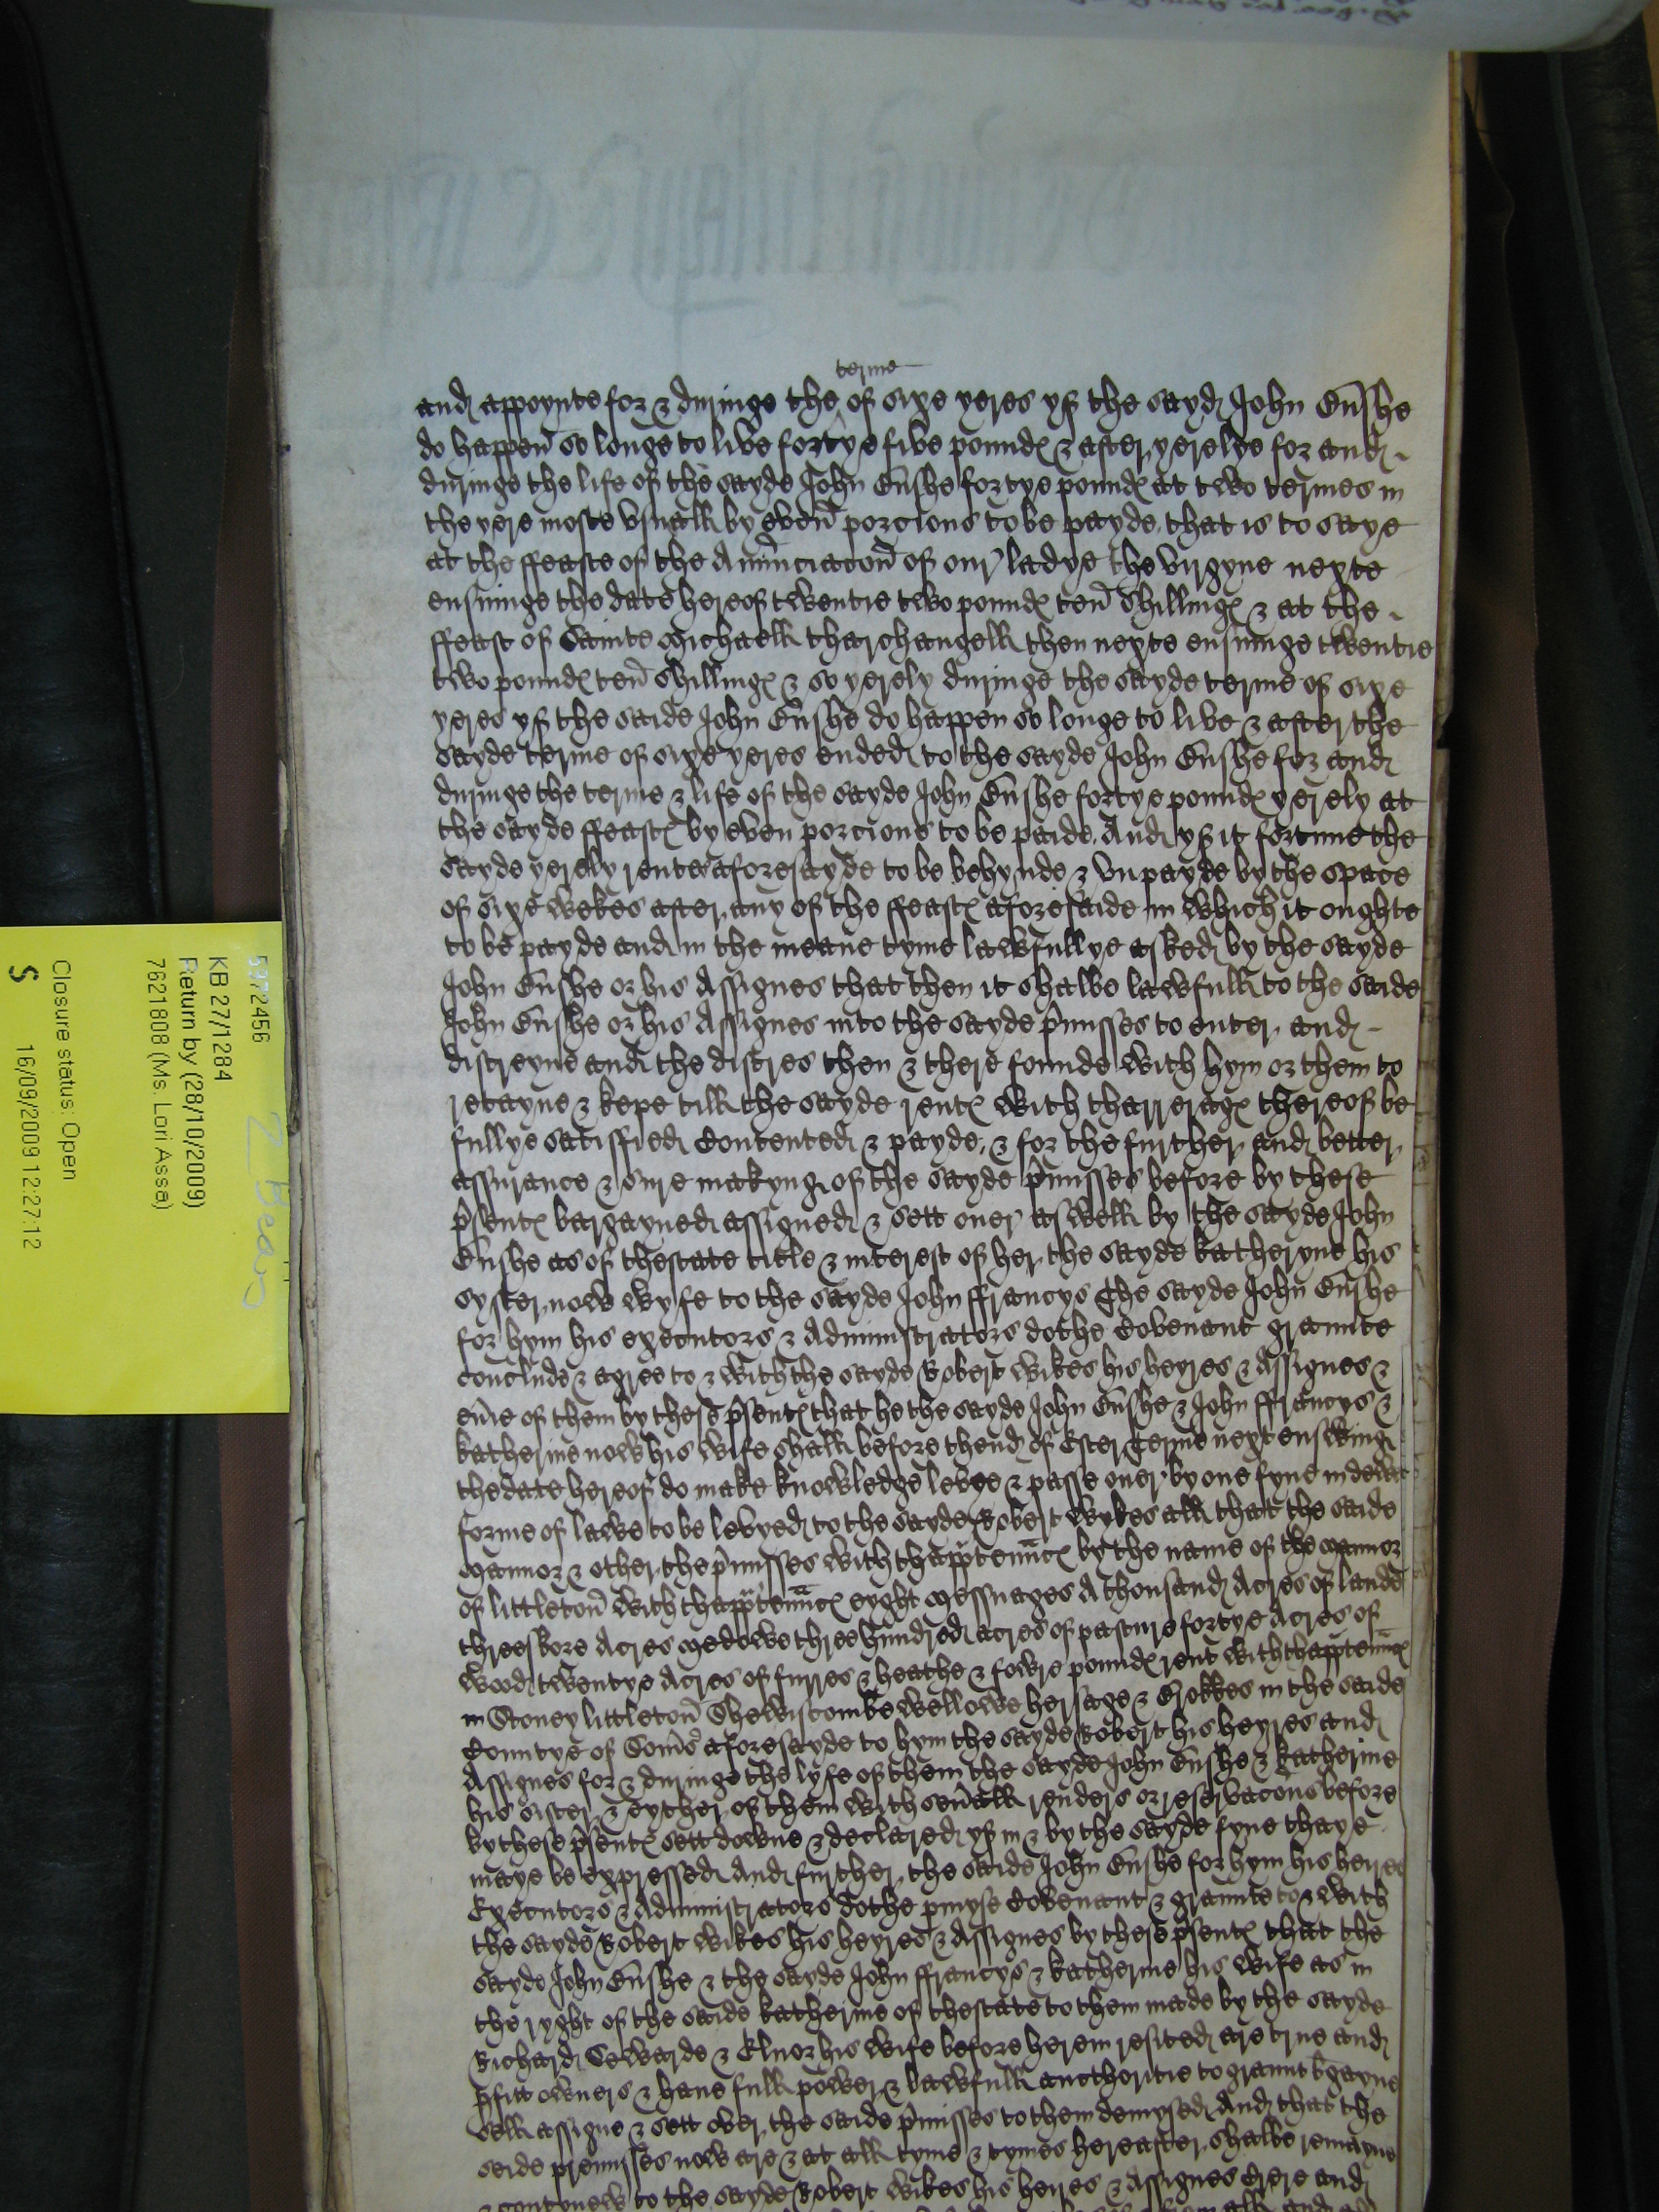 terme
and appoynte for & duringe the of sixe yeres yf the sayd John Ewshe
do happen so longe to live fortye five pound & after yerelye for and
duringe the life of the sayde John Ewshe fortye pound at two termes in
the yere moste usuall by even porcions to be payde that is to saye
at the ffeaste of the Anunciacon of our ladye the virgyne nexte
ensuinge the date hereof twentie two pound ten shilling & at the
ffeast of Sainte Michaell tharchangell then nexte ensuinge twentie
two pound ten shilling & so yerely duringe the sayde terme of sixe
yeres yf the saide John Ewshe do happen so longe to live & after the
sayde terme of sixe yeres ended to the sayde John Ewshe for and
duringe the terme & life of the sayde John Ewshe fortye pound yerely at
the sayde ffeast by even porcions to be paide And yf it fortune the
sayde yerely rente aforesayde to be behynde & unpayde by the space
of sixe wekes after any of the ffeast aforesaide in which it oughte
to be payde and in the meane tyme lawfullye asked by the sayde
John Ewshe or his Assignes that then it shalbe lawfull to the saide
John Ewshe or his Assignes into the sayde pmisses to enter and
distreyne and the distres then & there founde with hym or them to
retayne & kepe till the sayde rent with tharrerag thereof be
fullye satisfied Contented & payde & for the further and better
assurance & sure makyng of the sayde pmisses before by these
psent bargayned assigned & sett over aswell by the sayde John
Ewshe as of thestate title & interest of her the sayde katheryne his
syster now wyfe to the sayde John ffrancys The sayde John Ewshe
for hym his executors & Administrators dothe Covenant graunte
conclude & agree to & with the sayde Robert Wikes his heyres & Assignes &
evie of them by these psent that he the sayde John Ewshe & John ffrancys &
katherine now his wife shall before thend of Ester Terme next ensewing
the date hereof do make knowledge levye & passe over by one fyne in dewe
forme of lawe to be levyed to the sayde Robert Wykes all that the saide
Mannor & other the pmisses with thapptennc by the name of the Mannor
of littleton with thapptennc eyght Messuages A thousand Acres of lande
threeskore Acres medowe three hundred acres of pasture fortye Acres of
wood twentye Acres of furres & heathe & fowre pound rent with thapptennc
in Stoney littleton Shewiscombe Wellowe herfage & Ekkes in the saide
Countye of Soms aforesayde to hym the sayde Robert his heyres and
Assignes for & duringe the lyfe of them the sayde John Ewshe & Katherine
his sister & eyther of them with sevall renders or reservacons before
by these psent sett downe & declared yf in & by the sayde fyne thaye
maye be expressed And further the saide John Ewshe for hym his heires
Executors & Administrators dothe pmyse Covenant & graunte to & with
the sayde Robert Wikes his heyres & Assignes by these psent that the
sayde John Ewshe & the sayde John ffrancys & katherine his wife as in
the ryght of the saide katherine of thestate to them made by the sayde
Richard Sewarde & Elnor his wife before herein resited are true and
pfitt owners & have full power & lawfull aucthoritie to graunt bgayne
sell assigne & sett over the saide pmisses to them demysed And that the
seide premisses now are & at all tyme & tymes hereafter shalbe remayne
& contynew to the sayde Robert Wikes his heires & Assignes Clere and
5972456
KB 27/1284
Return by (28/10/2009)
7621808 (Ms. Lori Assa)
Closure status: Open
S 16/09/2009 12:27:12